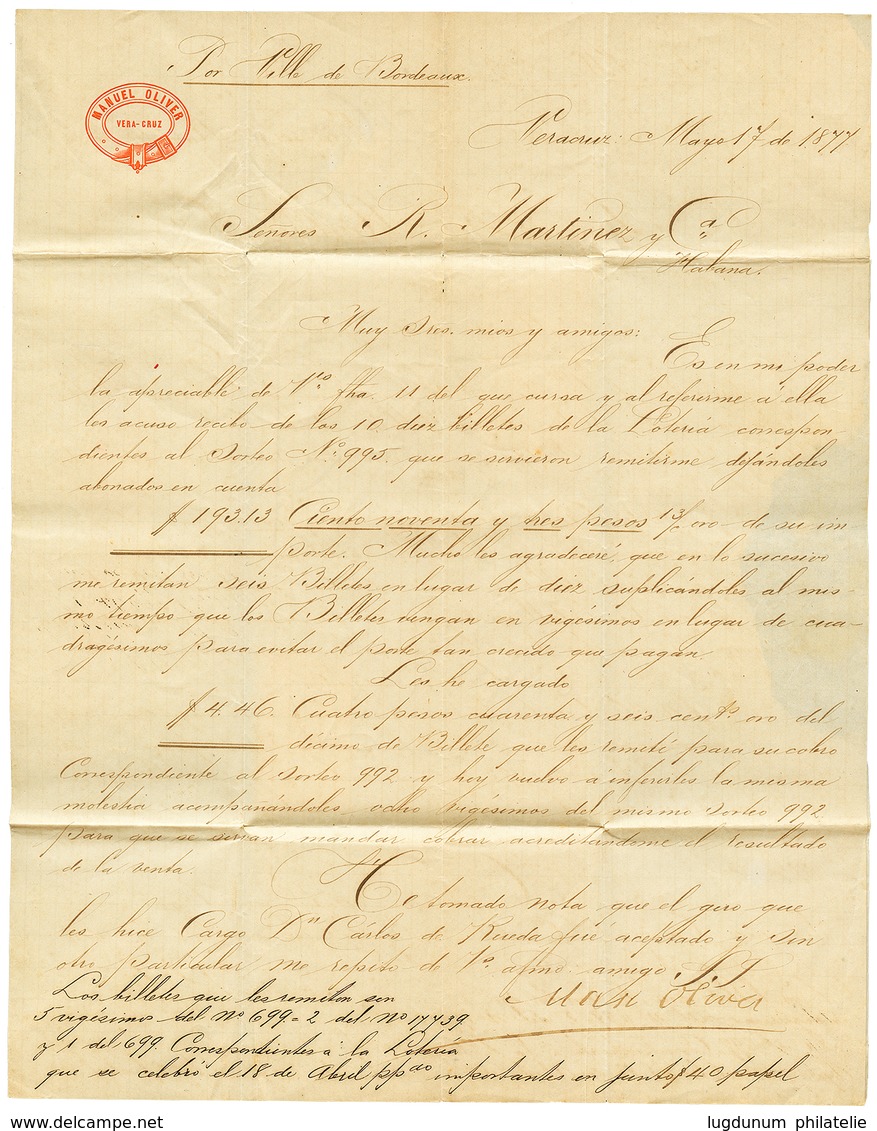 Por Ville de Bordeaux.
MANUEL OLIVER
VERA-CRUZ
Veracruz: Mayo 17 de 1877
Señores R. Martinez y Cª
Habana.
Muy Sres. mios y amigos:
Es en mi poder
la apreciable de Vs. fha. 11 del que cursa y al referirme á ella
les acuso recibo de los 10 diez billetes de la Loteriá correspon-
dientes al Sorteo Nº 995. que se sirvieron remitirme dejándoles
abonados en cuenta
$ 193.13 Ciento noventa y tres pesos 13/ oro de su im-
porte. Mucho les agradeceré que en lo sucesivo
me remitan seis Billetes en lugar de diez suplicándoles al mis-
mo tiempo que los Billetes vengan en vigésimos en lugar de cua-
dragésimos para evitar el porte tan crecido que pagan.
Les he cargado
$ 4.46. Cuatro pesos cuarenta y seis centº oro del
décimo de Billete que les remití para su cobro
Correspondiente al Sorteo 992 y hoy vuelvo á inferirles la misma
molestia acompañándoles ocho vigésimos del mismo Sorteo 992
para que se sirvan mandar cobrar acreditandome el resultado
de la venta.
He tomado nota que el giro que
les hice Cargo Dn Cárlos de Rueda fué aceptado y sin
otro particular me repito de Vs. afmo. amigo
Los billetes que les remiton son
Man Oliver
5 vigésimos del Nº 699 = 2 del Nº 17739
y 1 del 699. Correspondientes á la Loteria
que se celebró el 18 de Abril ppdo importantes en junto $40 papel
lugdunum philatelie